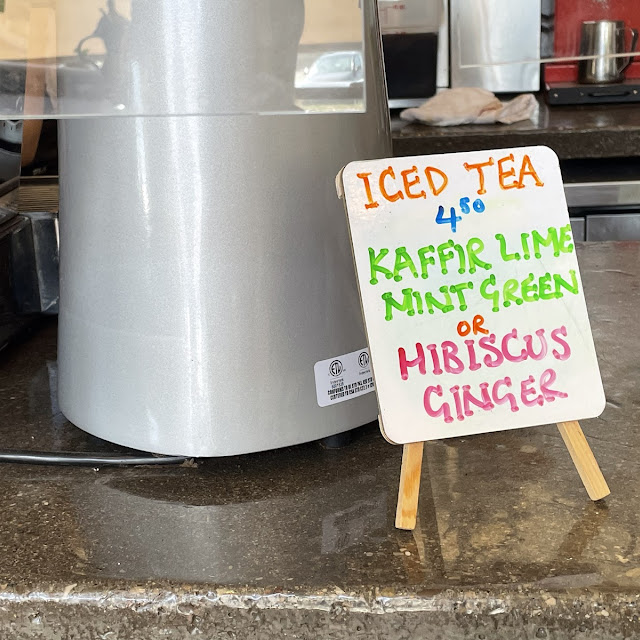 ICED TEA
4⁵⁰
KAFFIR LIME
MINT GREEN
OR
HIBISCUS
GINGER